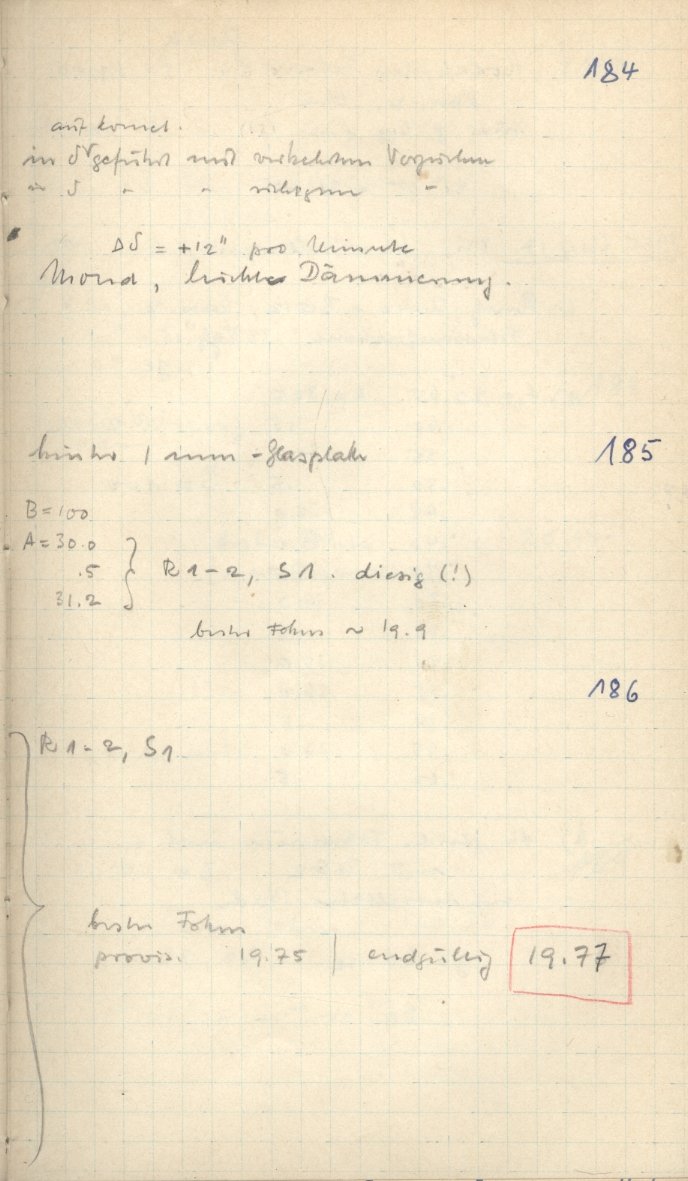 184
auf Komet.
in δ geführt mit verkehrtem Vorzeichen
in δ " " richtigem "
Δδ = +12" pro Minute
Mond, leichte Dämmerung.
hinter 1 mm-Glasplatte
185
B=100
A=30.0
.5
31.2
R1-2, S1. diesig (!)
bester Fokus ~ 19.9
186
R1-2, S1.
bester Fokus
provis. 19.75 | endgültig 19.77